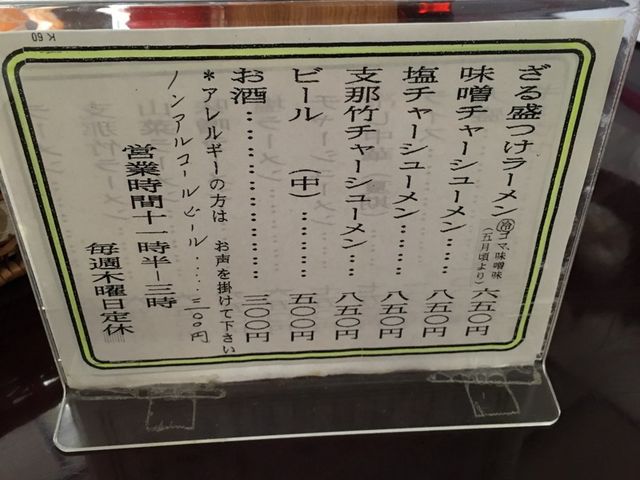 ざる盛つけラーメン ㊗冷 コマ、味噌味 (五月頃より) 六五〇円
味噌チャーシューメン‥‥ 八五〇円
塩チャーシューメン‥‥‥ 八五〇円
支那竹チャーシューメン‥ 八五〇円
ビール (中)‥‥‥‥‥‥ 五〇〇円
お酒‥‥‥‥‥‥‥‥‥‥ 三〇〇円
*アレルギーの方は お声を掛けて下さい
ノンアルコールビール‥‥ 三〇〇円
営業時間十一時半-三時
毎週木曜日定休
K 60